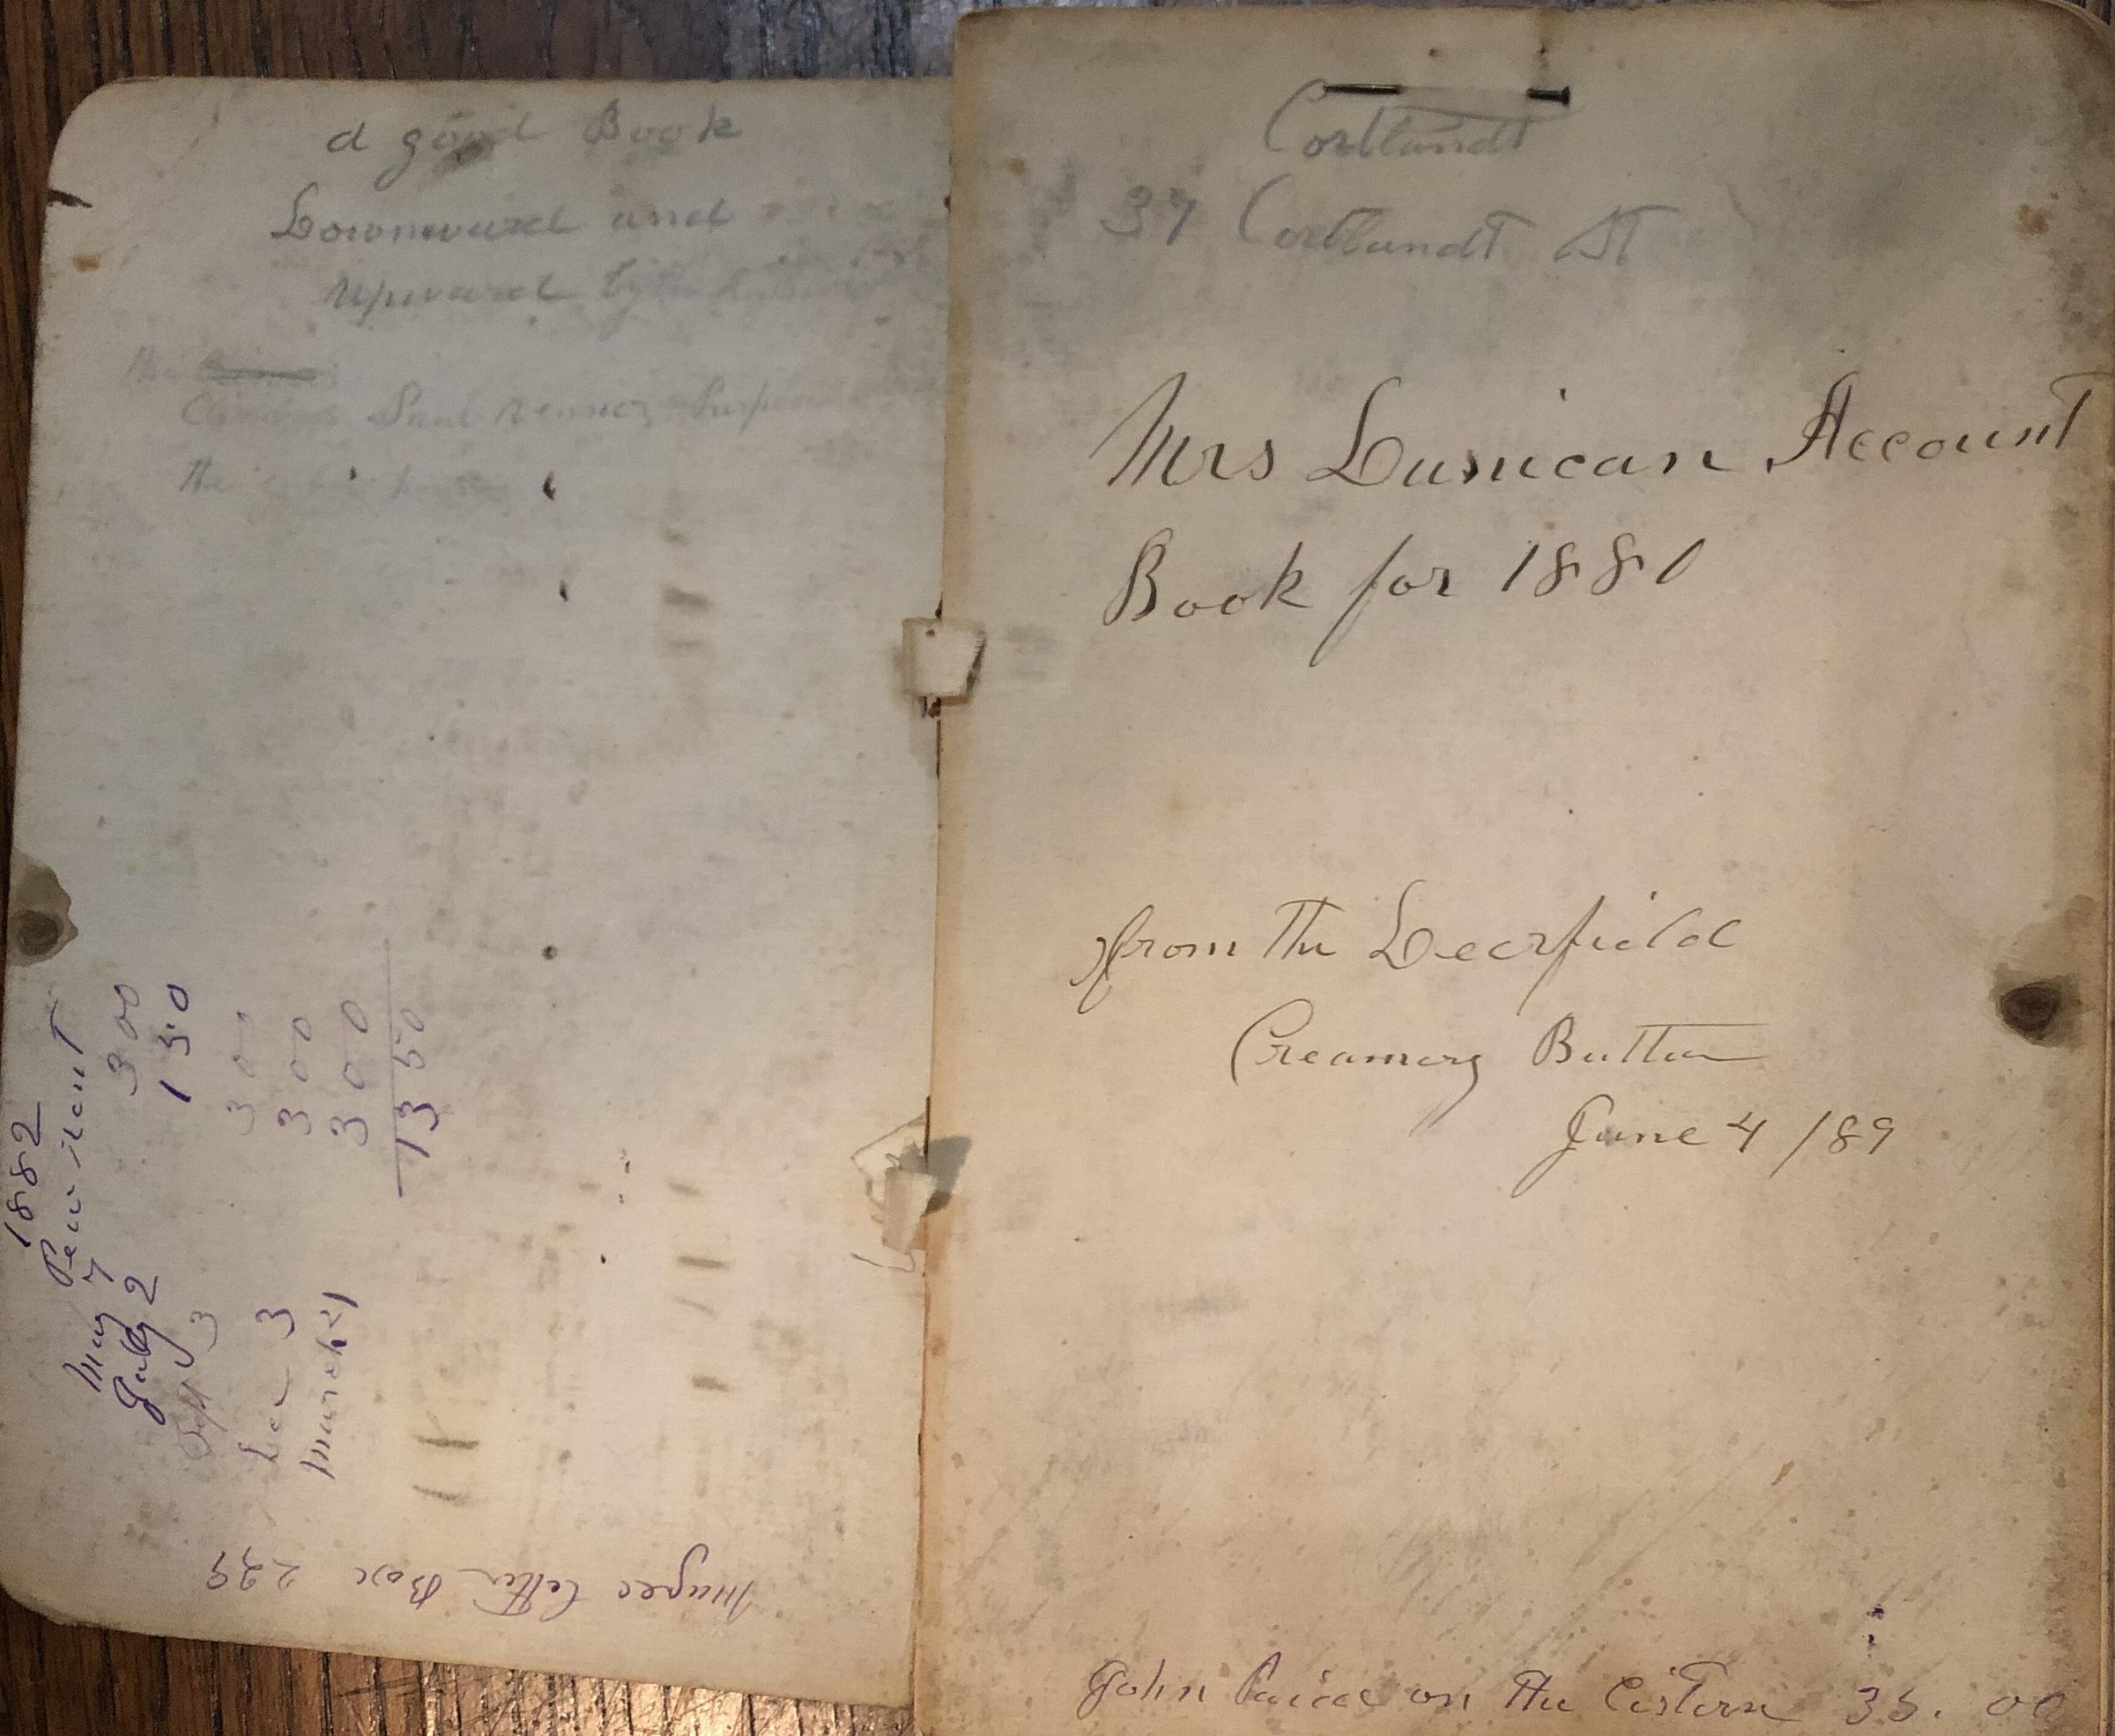 a good Book
Downward and
Upward by
the
Saul
the
1882
Pew rent
May 7 3 00
July 2 1 50
Sept 3 3 00
Dec 3 3 00
March 21 3 00
13 50
letter Box 229
Cortlandt
37 Cortlandt St
Mrs Dunican Account
Book for 1880
from the Deerfield
Creamery Butter
June 4 /89
John Paid on the Cistern 35.00